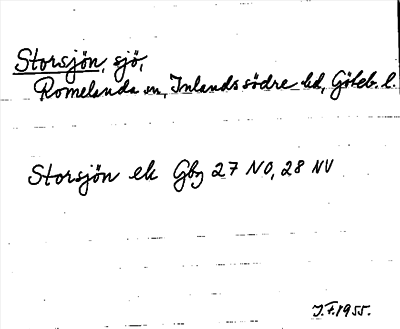 Storsjön, sjö,
Romelanda sn, Inlands södre hd, Göteb. l.
Storsjön ek Gbg 27 NO, 28 NV
J.F. 1955.